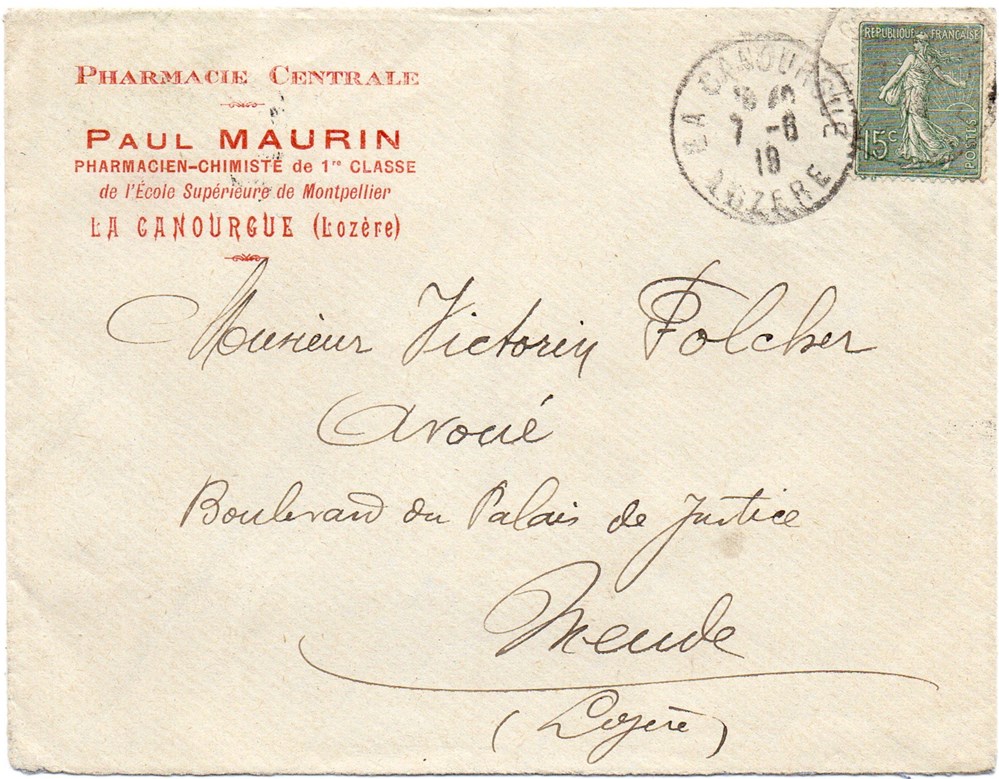 PHARMACIE CENTRALE
PAUL MAURIN
PHARMACIEN-CHIMISTE de 1re CLASSE
de l'École Supérieure de Montpellier
LA CANOURGUE (Lozère)
LA CANOURGUE
7 -6
19
LOZERE
REPUBLIQUE FRANÇAISE
15c
POSTES
Monsieur Victorin Folcher
Avoué
Boulevard du Palais de Justice
Mende
(Lozère)